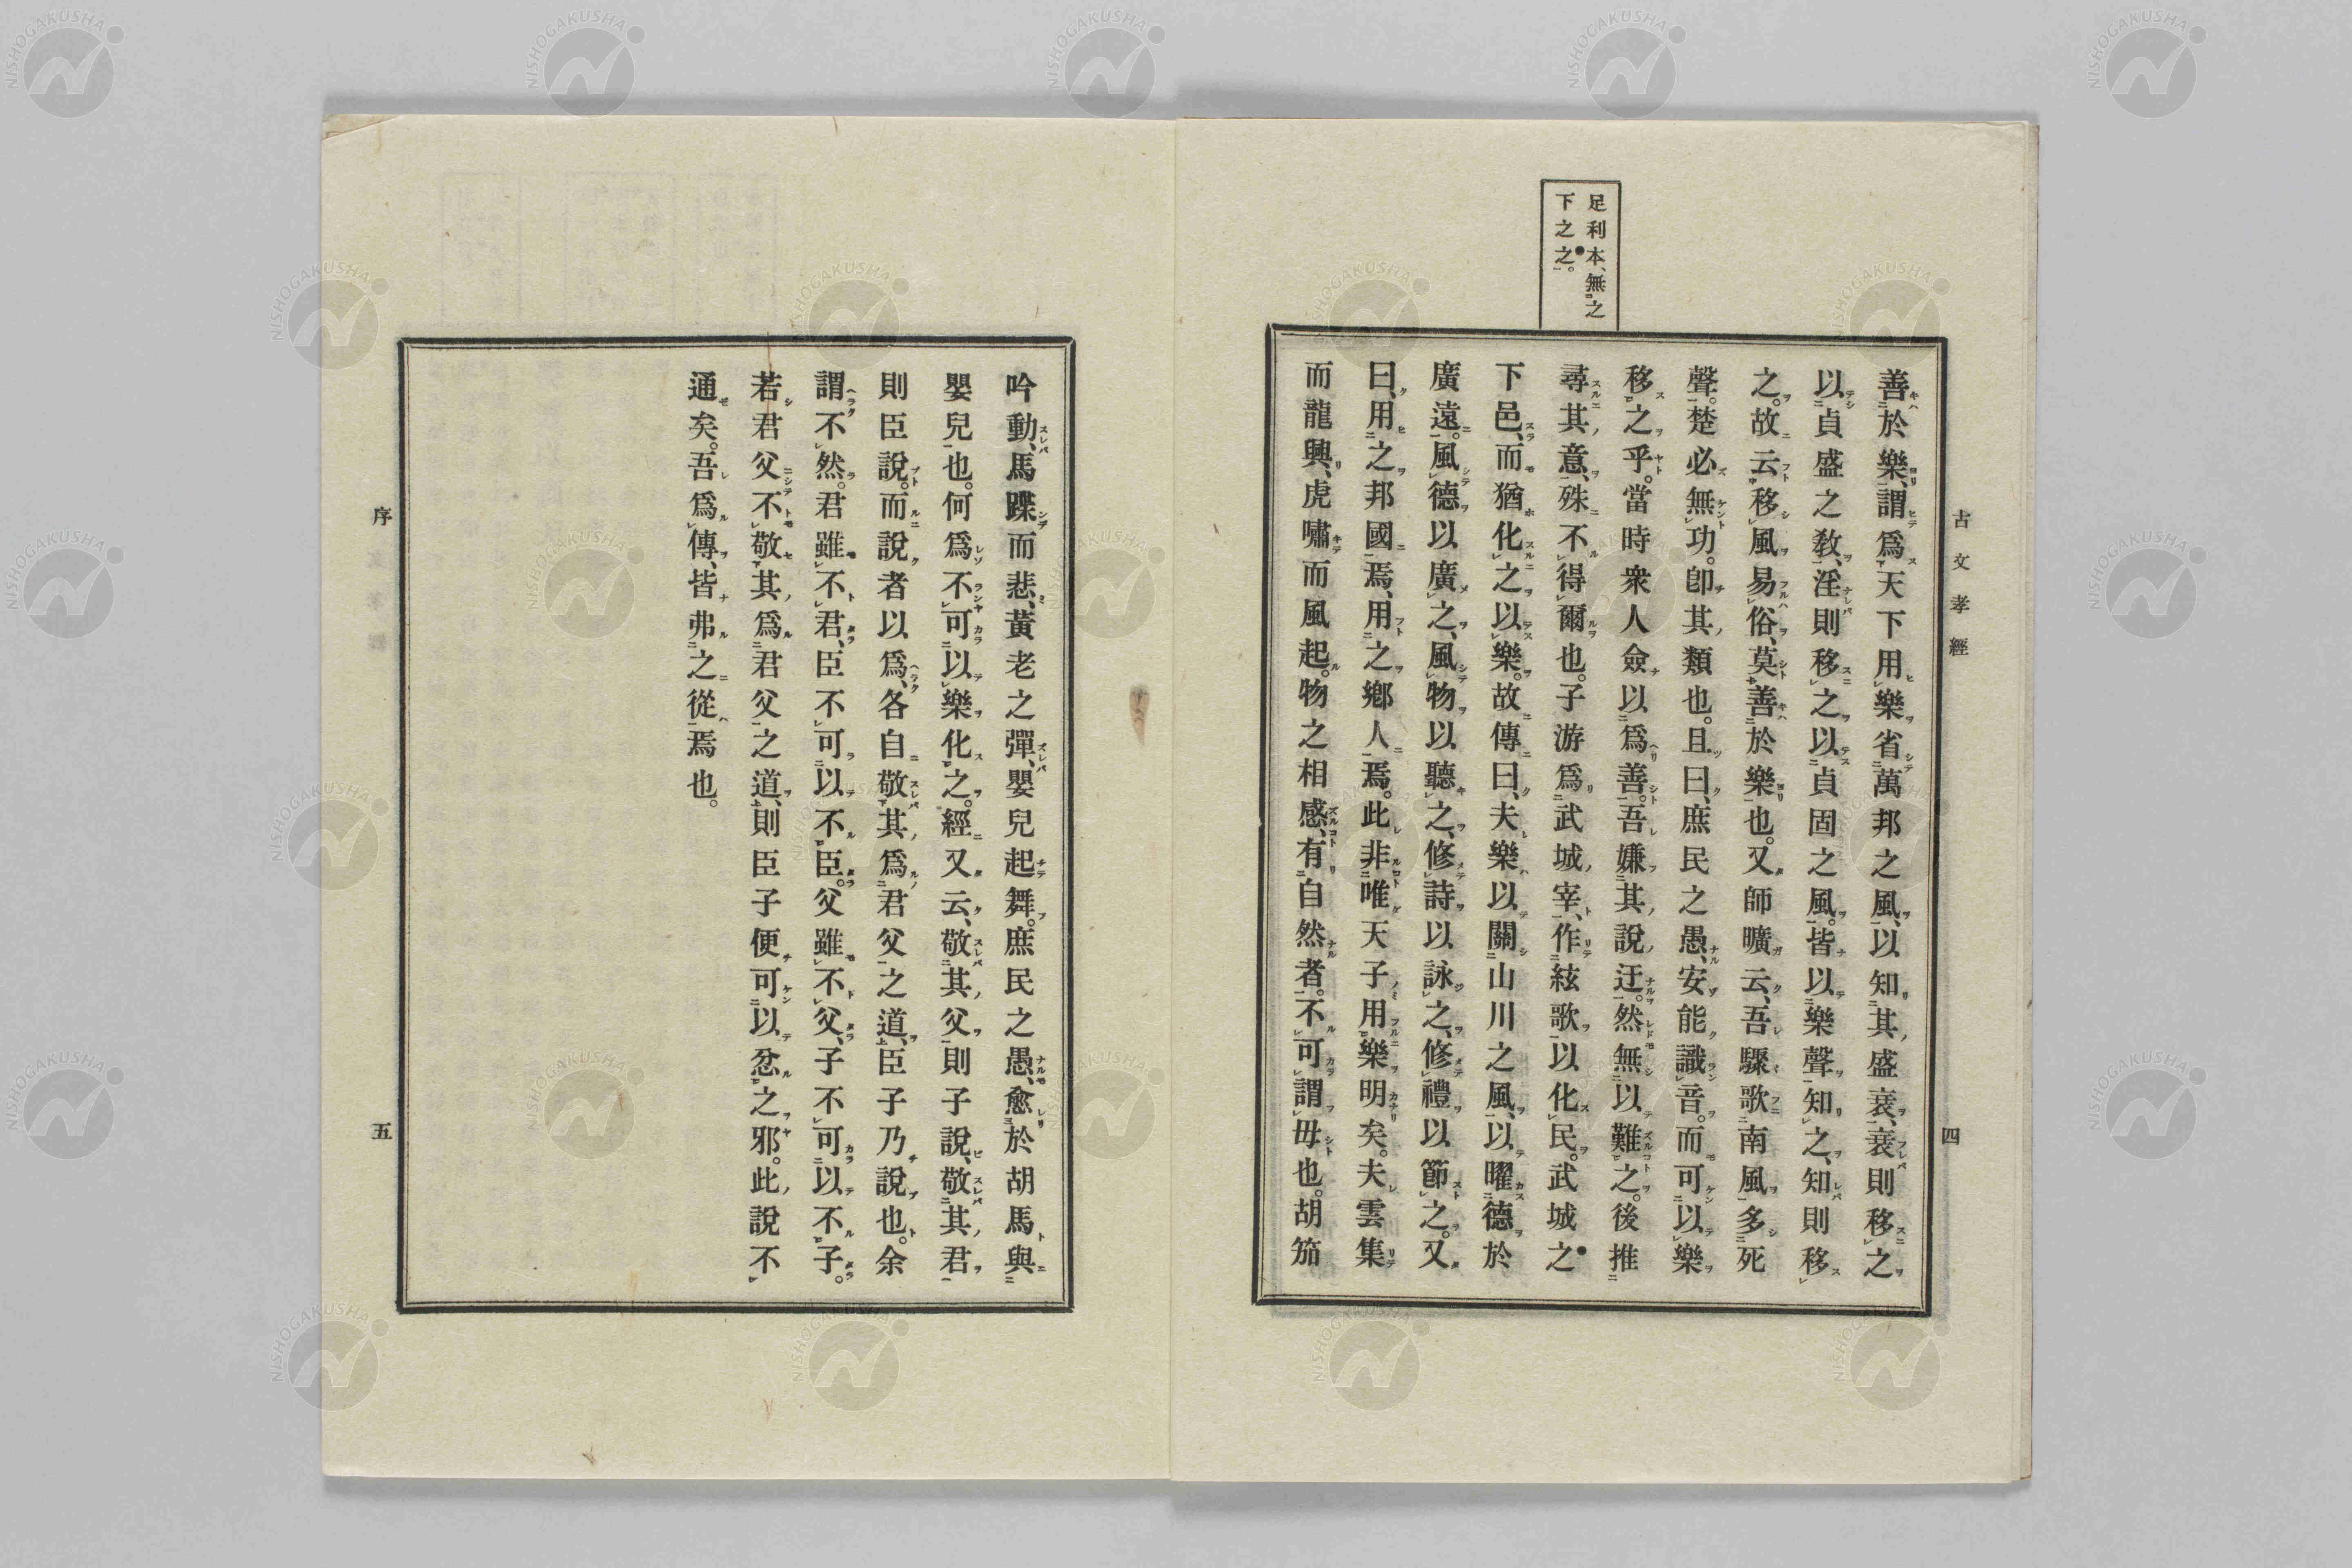 古文孝經
四
足利本、無之
下之之。
善於樂、謂爲天下用樂省萬邦之風、以知其盛衰、衰則移之
以貞盛之教、淫則移之以貞固之風。皆以樂聲知之、知則移
之。故云移風易俗、莫善於樂也。又師曠云、吾驟歌南風、多死
聲。楚必無功。卽其類也。且曰、庶民之愚、安能識音。而可以樂
移之乎。當時衆人僉以爲善。吾嫌其說迂。然無以難之。後推
尋其意、殊不得爾也。子游爲武城宰、作絃歌以化民。武城之
下邑、而猶化之以樂。故傳曰、夫樂以關山川之風、以曜德於
廣遠。風德以廣之、風物以聽之、修詩以詠之、修禮以節之。又
曰、用之邦國焉、用之鄉人焉。此非唯天子用樂明矣。夫雲集
而龍興、虎嘯而風起。物之相感、有自然者。不可謂毋也。胡笳
吟動、馬蹀而悲、黃老之彈、嬰兒起舞。庶民之愚、愈於胡馬與
嬰兒也。何爲不可以樂化之。經又云、敬其父則子說、敬其君
則臣說。而說者以爲、各自敬其爲君父之道、臣子乃說也。余
謂不然。君雖不君、臣不可以不臣。父雖不父、子不可以不子。
若君父不敬其爲君父之道、則臣子便可以忿之邪。此說不
通矣。吾爲傳、皆弗之從焉也。
序
五
NISHOGAKUSHA